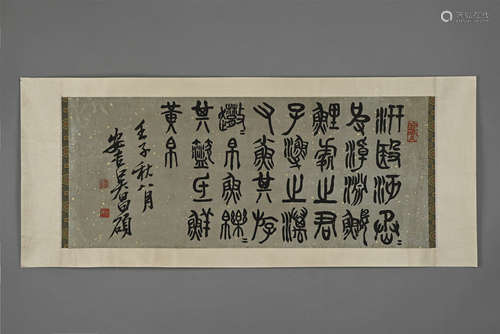 汧殹沔丞
皮淖淵鰋
鯉處之君
子漁之
又其斿
帛魚皪
其氐鮮
黃帛
壬子秋八月
安吉吳昌碩